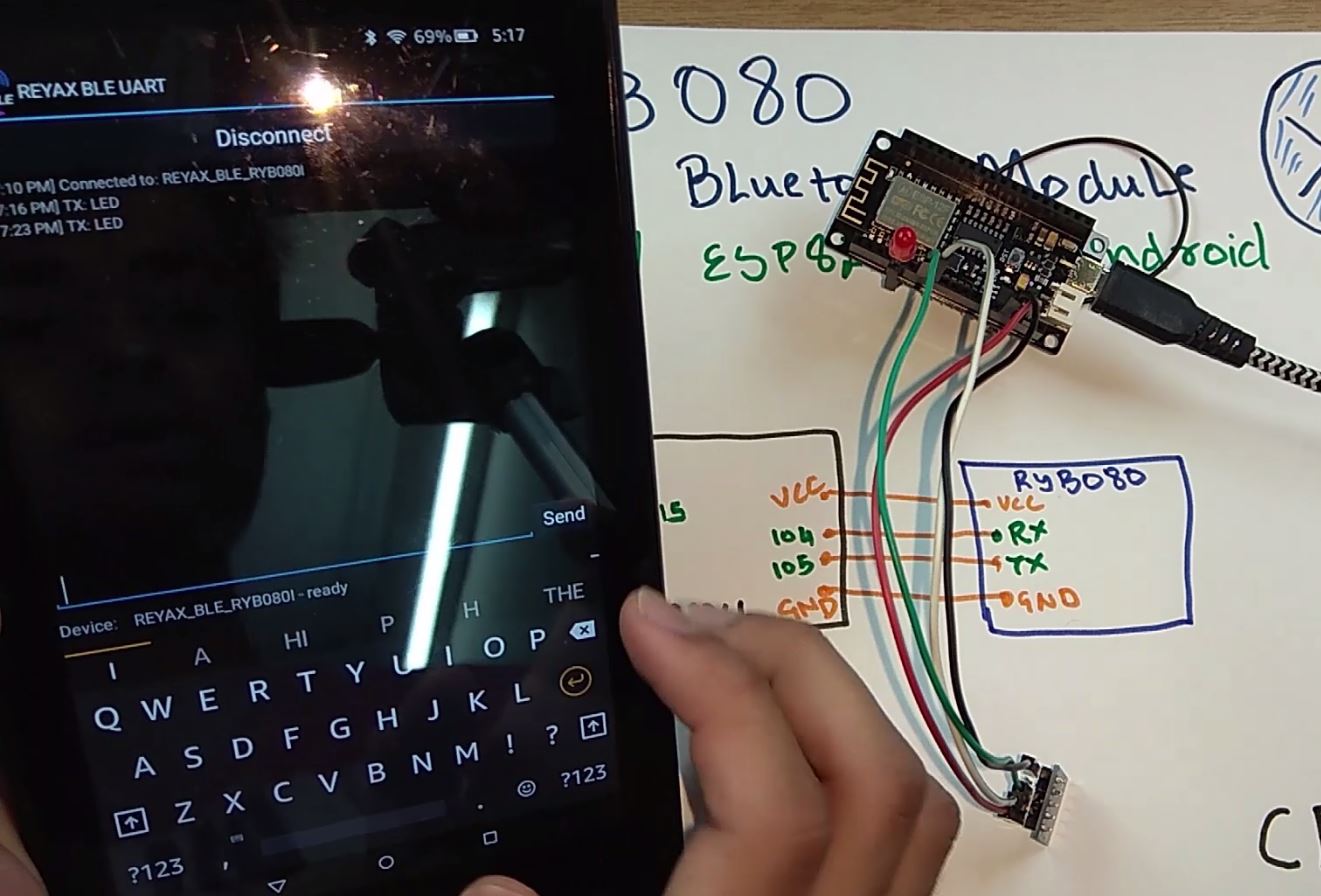 69% 5:17
REYAX BLE UART
Disconnect
:10 PM] Connected to: REYAX_BLE_RYB080I
7:16 PM] TX: LED
7:23 PM] TX: LED
Send
Device: REYAX_BLE_RYB080I - ready
I A HI P H THE
Q W E R T Y U I O P
A S D F G H J K L
Z X C V B N M ! ?
?123 , . ?123
B080
Bluet Module
ESP8 ndroid
VCC
IO4
IO5
GND
RYB080
VCC
RX
TX
GND